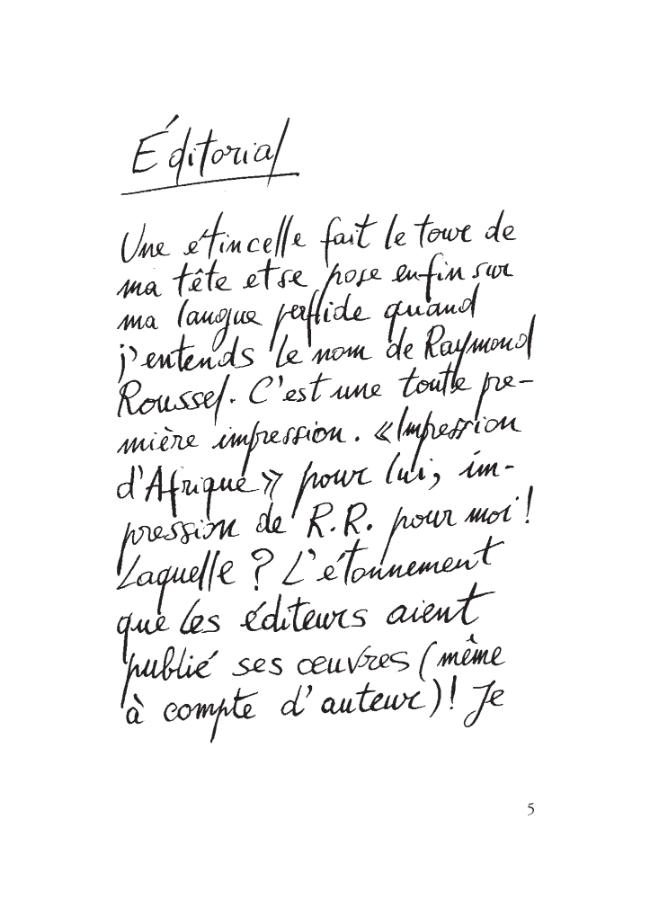 Éditorial
Une étincelle fait le tour de
ma tête et se pose enfin sur
ma langue perfide quand
j'entends le nom de Raymond
Roussel. C'est une toute pre-
mière impression. «Impression
d'Afrique» pour lui, im-
pression de R.R. pour moi !
Laquelle ? L'étonnement
que les éditeurs aient
publié ses œuvres (même
à compte d'auteur)! Je
5